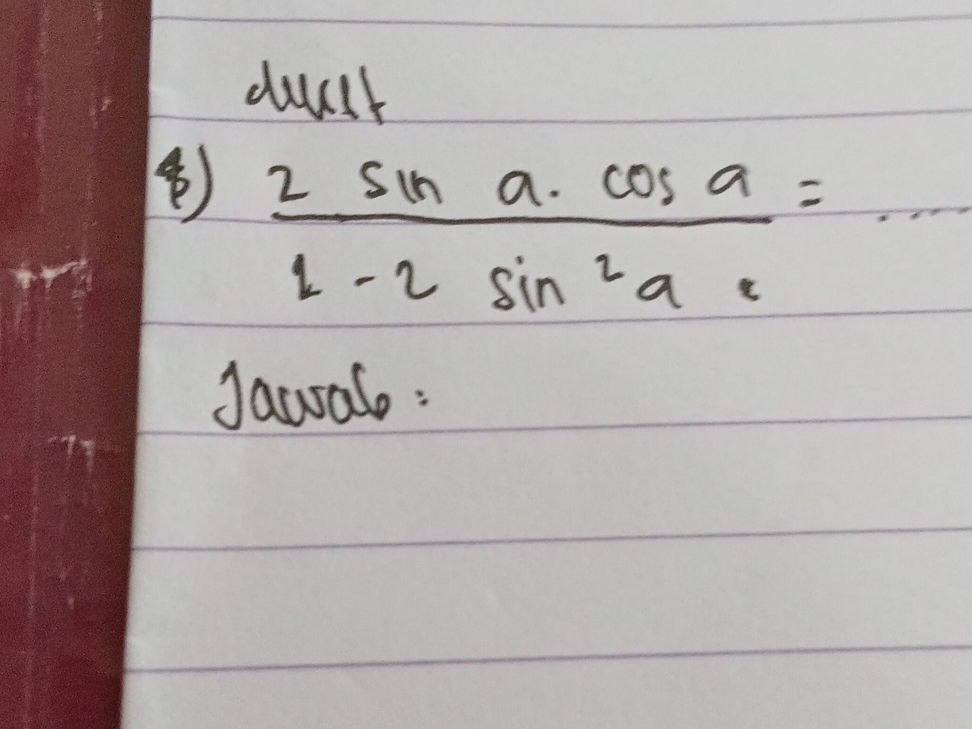 2 sin a. cos a = ....
1 - 2 sin ² a
Jawab :